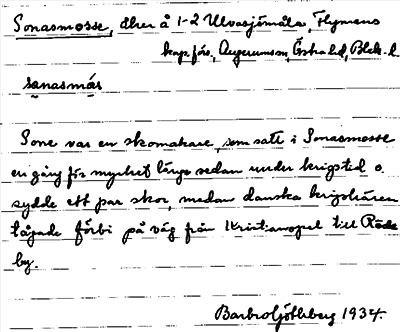 Sonasmosse, åker å 1-2 Ulvasjömåla, Flymens
kap.förs, Augerums sn, Östra hd, Blek. l.
sanasmås
Sone var en skomakare, som satt i Sonasmosse
en gång för mycket länge sedan under krigstid o.
sydde ett par skor, medan danska krigshären
tågade förbi på väg från Kristianopel till Rödeby.
by.
Barbro Ljöthberg 1934.